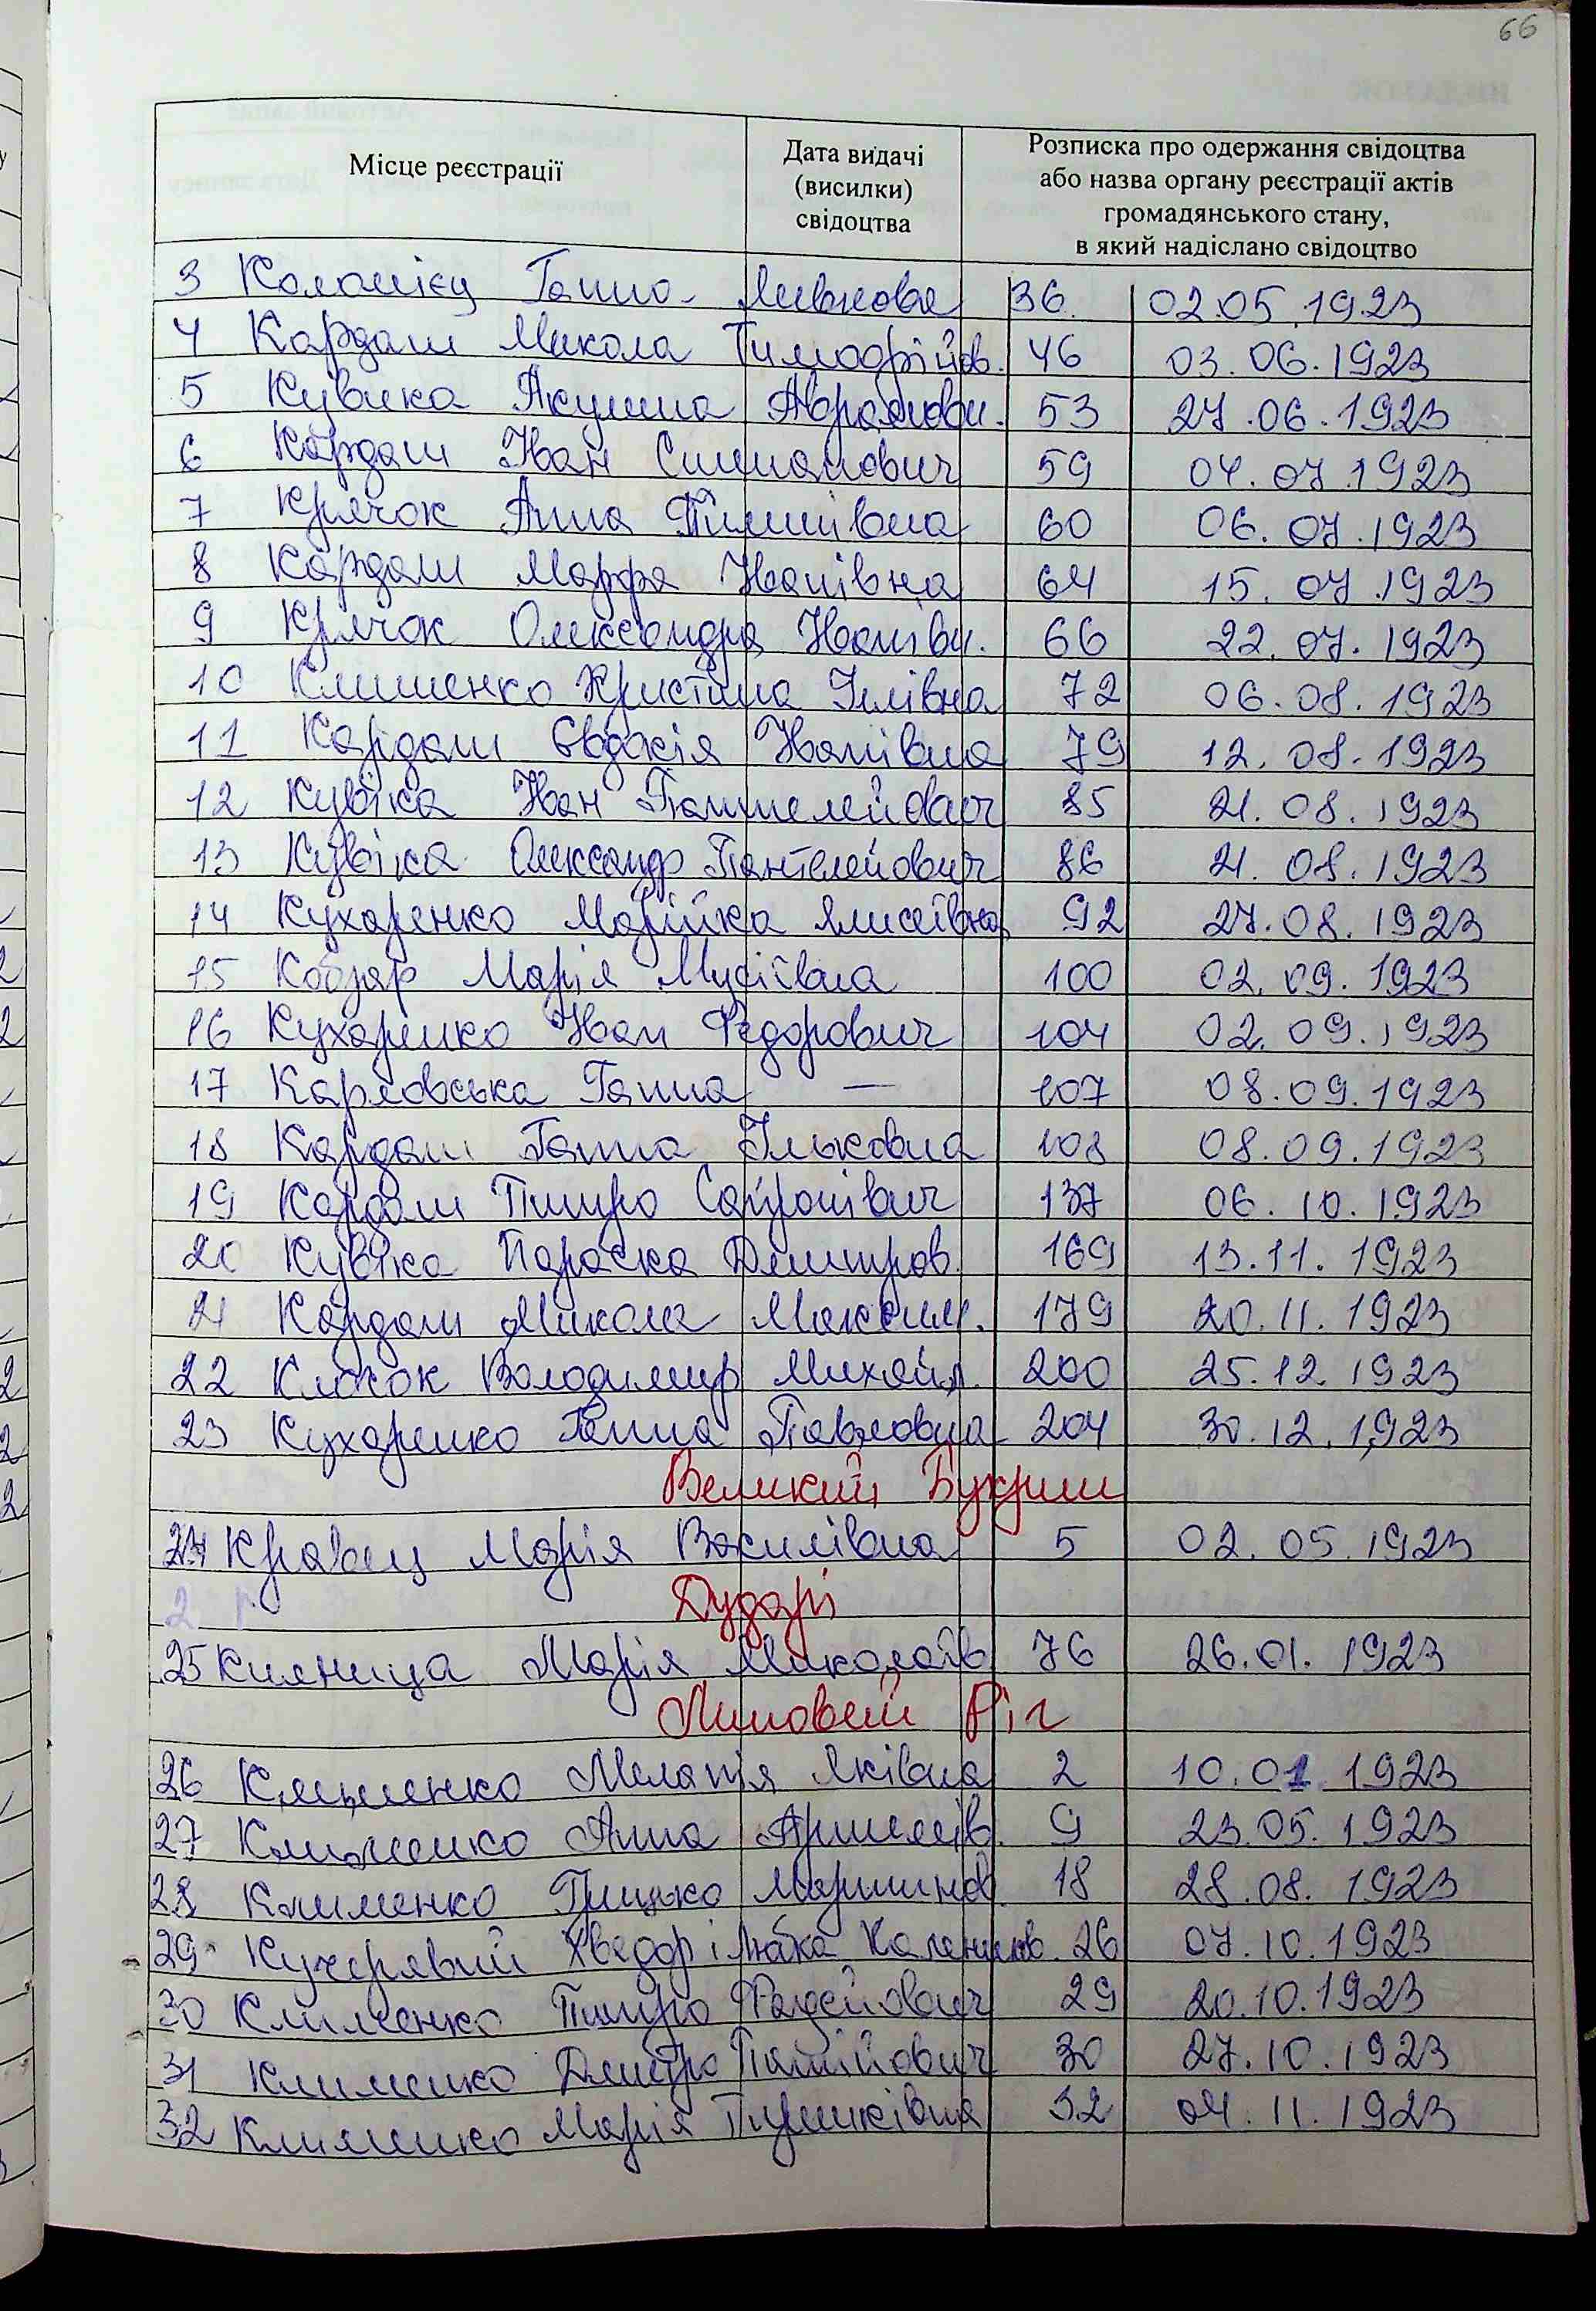 66
Місце реєстрації
Дата видачі
(висилки)
свідоцтва
Розписка про одержання свідоцтва
або назва органу реєстрації актів
громадянського стану,
в який надіслано свідоцтво
3 Коломієц Ганна 36. 02.05.1923
4 Кардаш Микола Тимофійов. 46 03.06.1923
5 Кувіка Акулина Аврамовн. 53 27.06.1923
6 Кардаш Іван 59 04.07.1923
7 Крячок Анна Пилипівна 60 06.07.1923
8 Кардаш Марфа Іванівна 64 15.07.1923
9 Крячок Олександра Іванівн. 66 22.07.1923
10 Клименко Христина Ілівна 72 06.08.1923
11 Кардаш Євдокія Іванівна 79 12.08.1923
12 Кувіка Іван Пантелейович 85 21.08.1923
13 Кувіка Олександр Пантелейович 86 21.08.1923
14 Кухаренко Марійка Єлисеївна 92 27.08.1923
15 Кобзар Марія Мусіївна 100 02.09.1923
16 Кухаренко Іван Федорович 104 02.09.1923
17 Карловська Ганна — 107 08.09.1923
18 Кардаш Ганна Ільковна 108 08.09.1923
19 Кардаш Петро Сафронівич 137 06.10.1923
20 Кувіка Параска Дмитров. 169 13.11.1923
21 Кардаш Микола Максим. 179 20.11.1923
22 Клочок Володимир Михайл. 200 25.12.1923
23 Кухаренко Ганна Павловна 204 30.12.1923
Великий Букрин
24 Кравец Марія Василівна 5 02.05.1923
Дударі
25 Килниця Марія Миколаїв 76 26.01.1923
Липовий Ріг
26 Клименко Меланія Яківна 2 10.01.1923
27 Клименко Анна Артемів. 9 23.05.1923
28 Клименко Грицько Мартинов 18 28.08.1923
29 Кучерявий Хведор і 26 07.10.1923
30 Клименко Петро Фадейович 29 20.10.1923
31 Клименко Дмитро 30 27.10.1923
32 Клименко Марія 32 04.11.1923